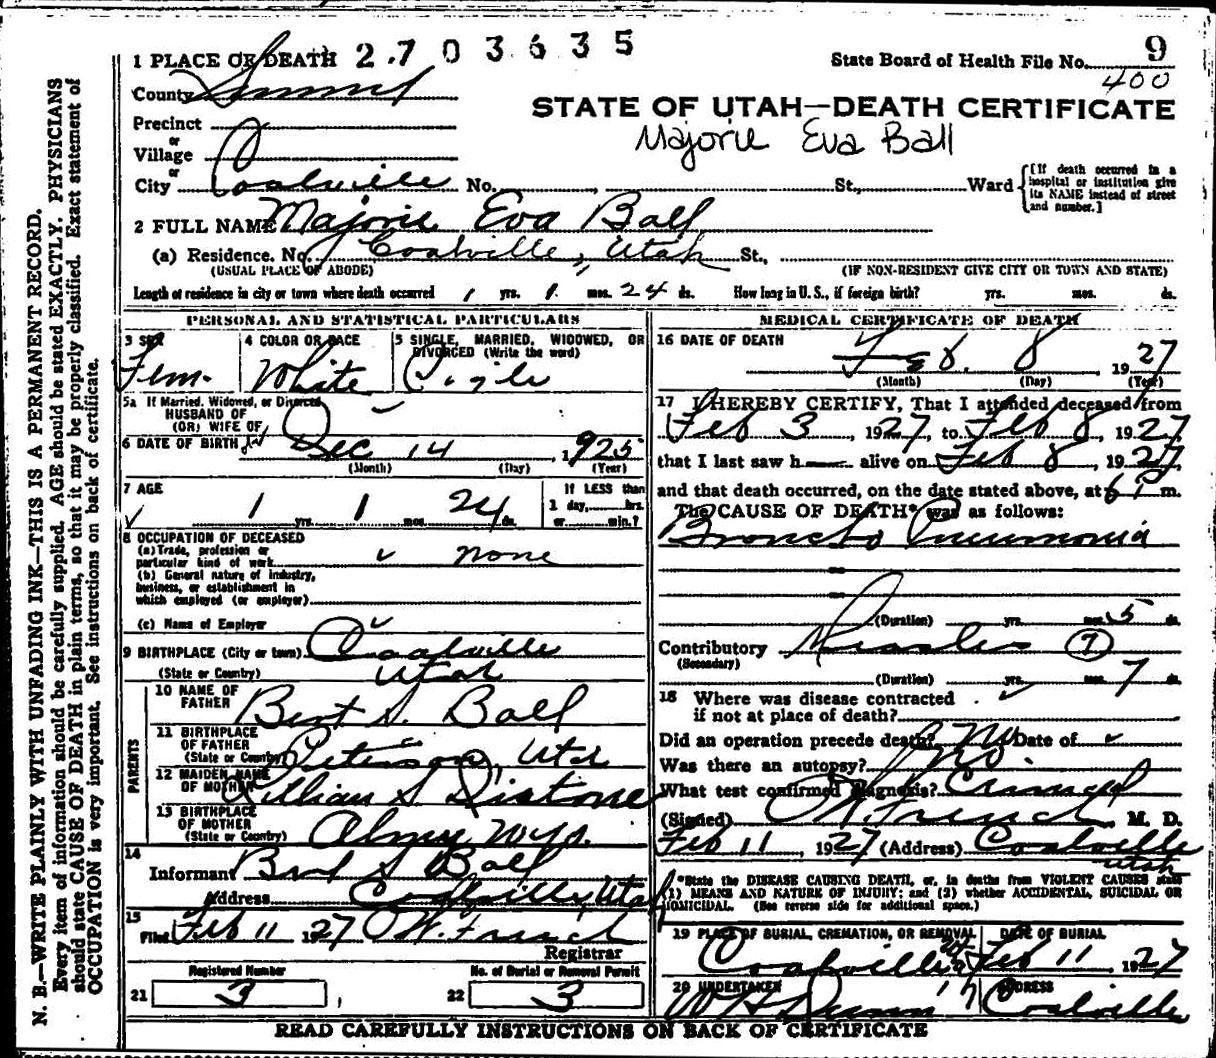 2.7 0 3 6 3 5
State Board of Health File No. 9
400
1 PLACE OF DEATH
County Summit
STATE OF UTAH—DEATH CERTIFICATE
Majorie Eva Ball
Precinct
or
Village
or
City Coalville No. , St., Ward
[If death occurred in a hospital or institution give its NAME instead of street and number.]
2 FULL NAME Majorie Eva Ball
(a) Residence. No. Coalville, Utah St.,
(USUAL PLACE OF ABODE) (IF NON-RESIDENT GIVE CITY OR TOWN AND STATE)
Length of residence in city or town where death occurred 1 yrs. 1 mos. 24 ds. How long in U. S., if foreign birth? yrs. mos. ds.
PERSONAL AND STATISTICAL PARTICULARS
3 SEX Fem.
4 COLOR OR RACE White
5 SINGLE, MARRIED, WIDOWED, OR DIVORCED (Write the word)
5a If Married, Widowed, or Divorced
HUSBAND OF
(OR) WIFE OF
6 DATE OF BIRTH Dec 14, 1925
(Month) (Day) (Year)
7 AGE 1 yrs. 1 mos. 24 ds.
If LESS than
1 day, hrs.
or min.?
8 OCCUPATION OF DECEASED
(a) Trade, profession or
particular kind of work none
(b) General nature of industry,
business, or establishment in
which employed (or employer)
(c) Name of Employer
9 BIRTHPLACE (City or town) Coalville
(State or Country) Utah
PARENTS
10 NAME OF FATHER Bert S. Ball
11 BIRTHPLACE OF FATHER
(State or Country) Peterson, Utah
12 MAIDEN NAME OF MOTHER Lillian S
13 BIRTHPLACE OF MOTHER
(State or Country) Almy Wyo.
14
Informant Bert S Ball
Address Coalville, Utah
15
Filed Feb 11 1927 Registrar
Registered Number
21 3
No. of Burial or Removal Permit
22 3
MEDICAL CERTIFICATE OF DEATH
16 DATE OF DEATH
Feb. 8 1927
(Month) (Day) (Year)
17 I HEREBY CERTIFY, That I attended deceased from
Feb 3, 1927, to Feb 8, 1927,
that I last saw h alive on Feb 8, 1927,
and that death occurred, on the date stated above, at m.
The CAUSE OF DEATH* was as follows:
Broncho Pneumonia
(Duration) yrs. mos. 5 ds.
Contributory Measles 7
(Secondary)
(Duration) yrs. mos. 7 ds.
18 Where was disease contracted
if not at place of death?
Did an operation precede death? No Date of
Was there an autopsy? No.
What test confirmed diagnosis? Clinical
(Signed) , M. D.
Feb 11, 1927 (Address) Coalville
Utah
*State the DISEASE CAUSING DEATH, or, in deaths from VIOLENT CAUSES state
(1) MEANS AND NATURE OF INJURY; and (2) whether ACCIDENTAL, SUICIDAL OR
HOMICIDAL. (See reverse side for additional space.)
19 PLACE OF BURIAL, CREMATION, OR REMOVAL
Coalville
DATE OF BURIAL
Feb 11, 1927
20 UNDERTAKER
ADDRESS
Coalville
READ CAREFULLY INSTRUCTIONS ON BACK OF CERTIFICATE
N. B.—WRITE PLAINLY WITH UNFADING INK—THIS IS A PERMANENT RECORD.
Every item of information should be carefully supplied. AGE should be stated EXACTLY. PHYSICIANS
should state CAUSE OF DEATH in plain terms, so that it may be properly classified. Exact statement of
OCCUPATION is very important. See instructions on back of certificate.